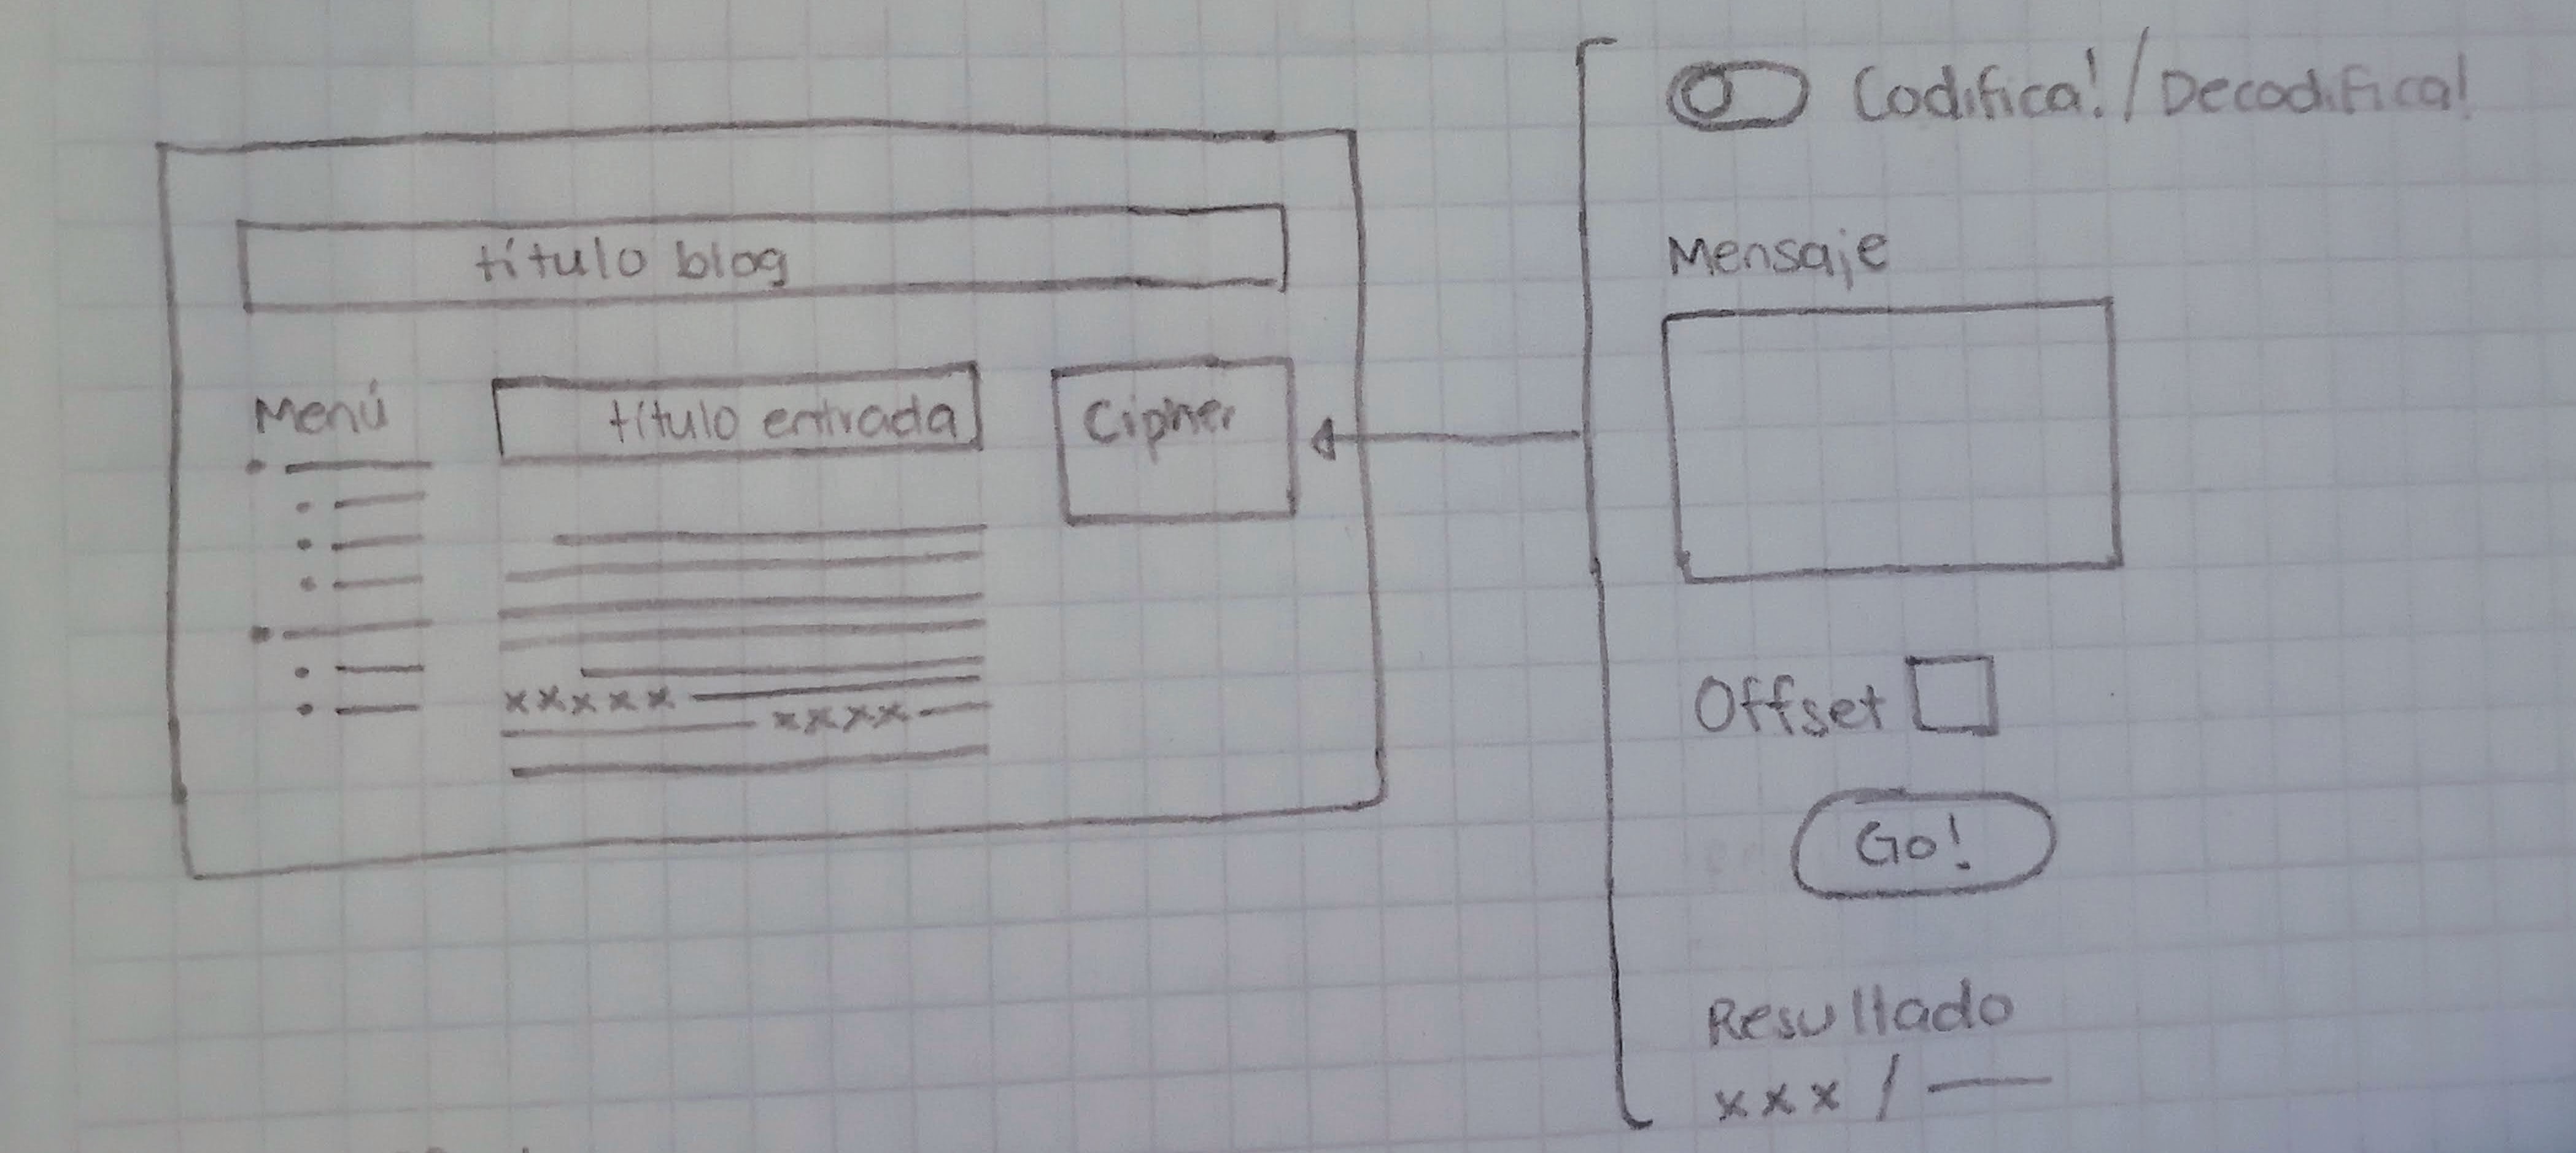 título blog
Menú
título entrada
xxxxx
xxxx
Cipher
Codifica!/Decodifica!
Mensaje
Offset
Go!
Resultado
xxx /